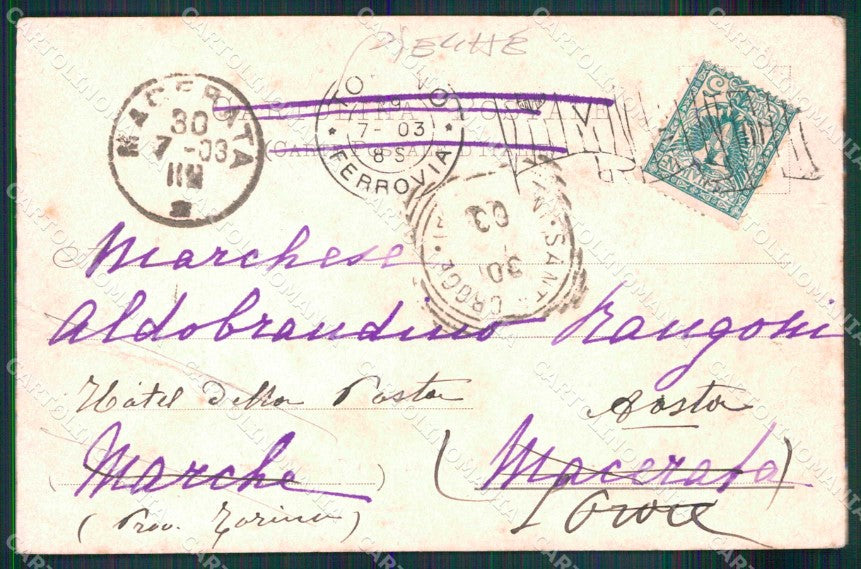 MACERATA
30
7-03
TORINO
7-03
8 S
FERROVIA
CARTOLINA POSTALE
SANTA CROCE
30
03
Marchese
Aldobrandino Rangoni
Hôtel della Posta Aosta
Marche (Macerata)
(Prov. Torino)
CARTOLINOMANIA